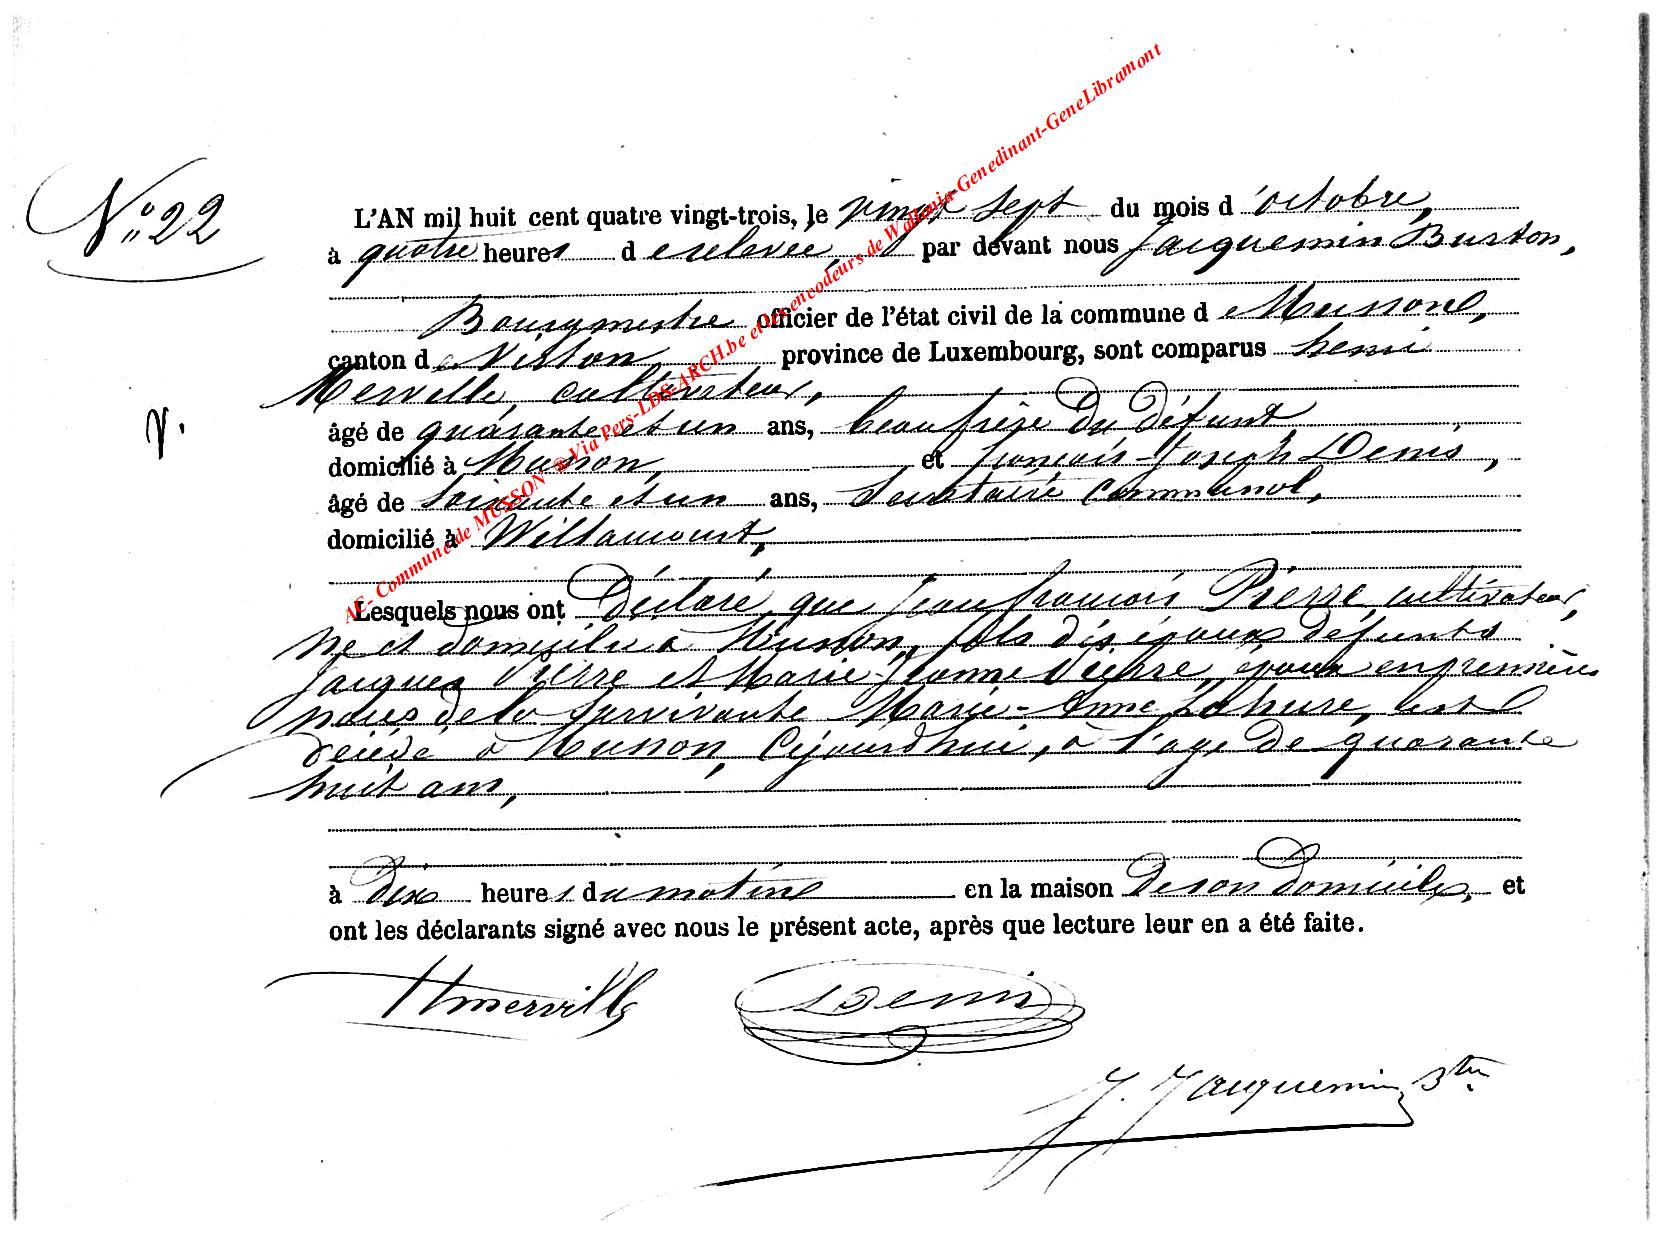 N° 22
L'AN mil huit cent quatre vingt-trois, le vingt sept du mois d'octobre,
à quatre heures de relevée, par devant nous Jacquemin Burton,
Bourgmestre officier de l'état civil de la commune de Musson,
canton de Virton province de Luxembourg, sont comparus henri
Merville, cultivateur,
V.
âgé de quarante et un ans, beau frère du défunt
domicilié à Musson, et françois-Joseph Denis,
âgé de soixante et un ans, Secrétaire Communal,
domicilié à Willancourt,
Lesquels nous ont Déclaré que Jean françois Pierre, cultivateur,
né et domicilié à Musson, fils des époux défunts
Jacques Pierre et Marie-Jeanne époux en premières
noces de la survivante Marie-Anne Lahure, est
décédé à Musson, Cejourd'hui, à l'age de quarante
huit ans,
à dix heures du matin en la maison de son domicile, et
ont les déclarants signé avec nous le présent acte, après que lecture leur en a été faite.
Hmerville Denis
J. Jacquemin Btn
AE- Commune de MUSSON @ Via Pers-LDS-ARCH.be et les encodeurs de Wallonia-Genedinant-GeneLibramont